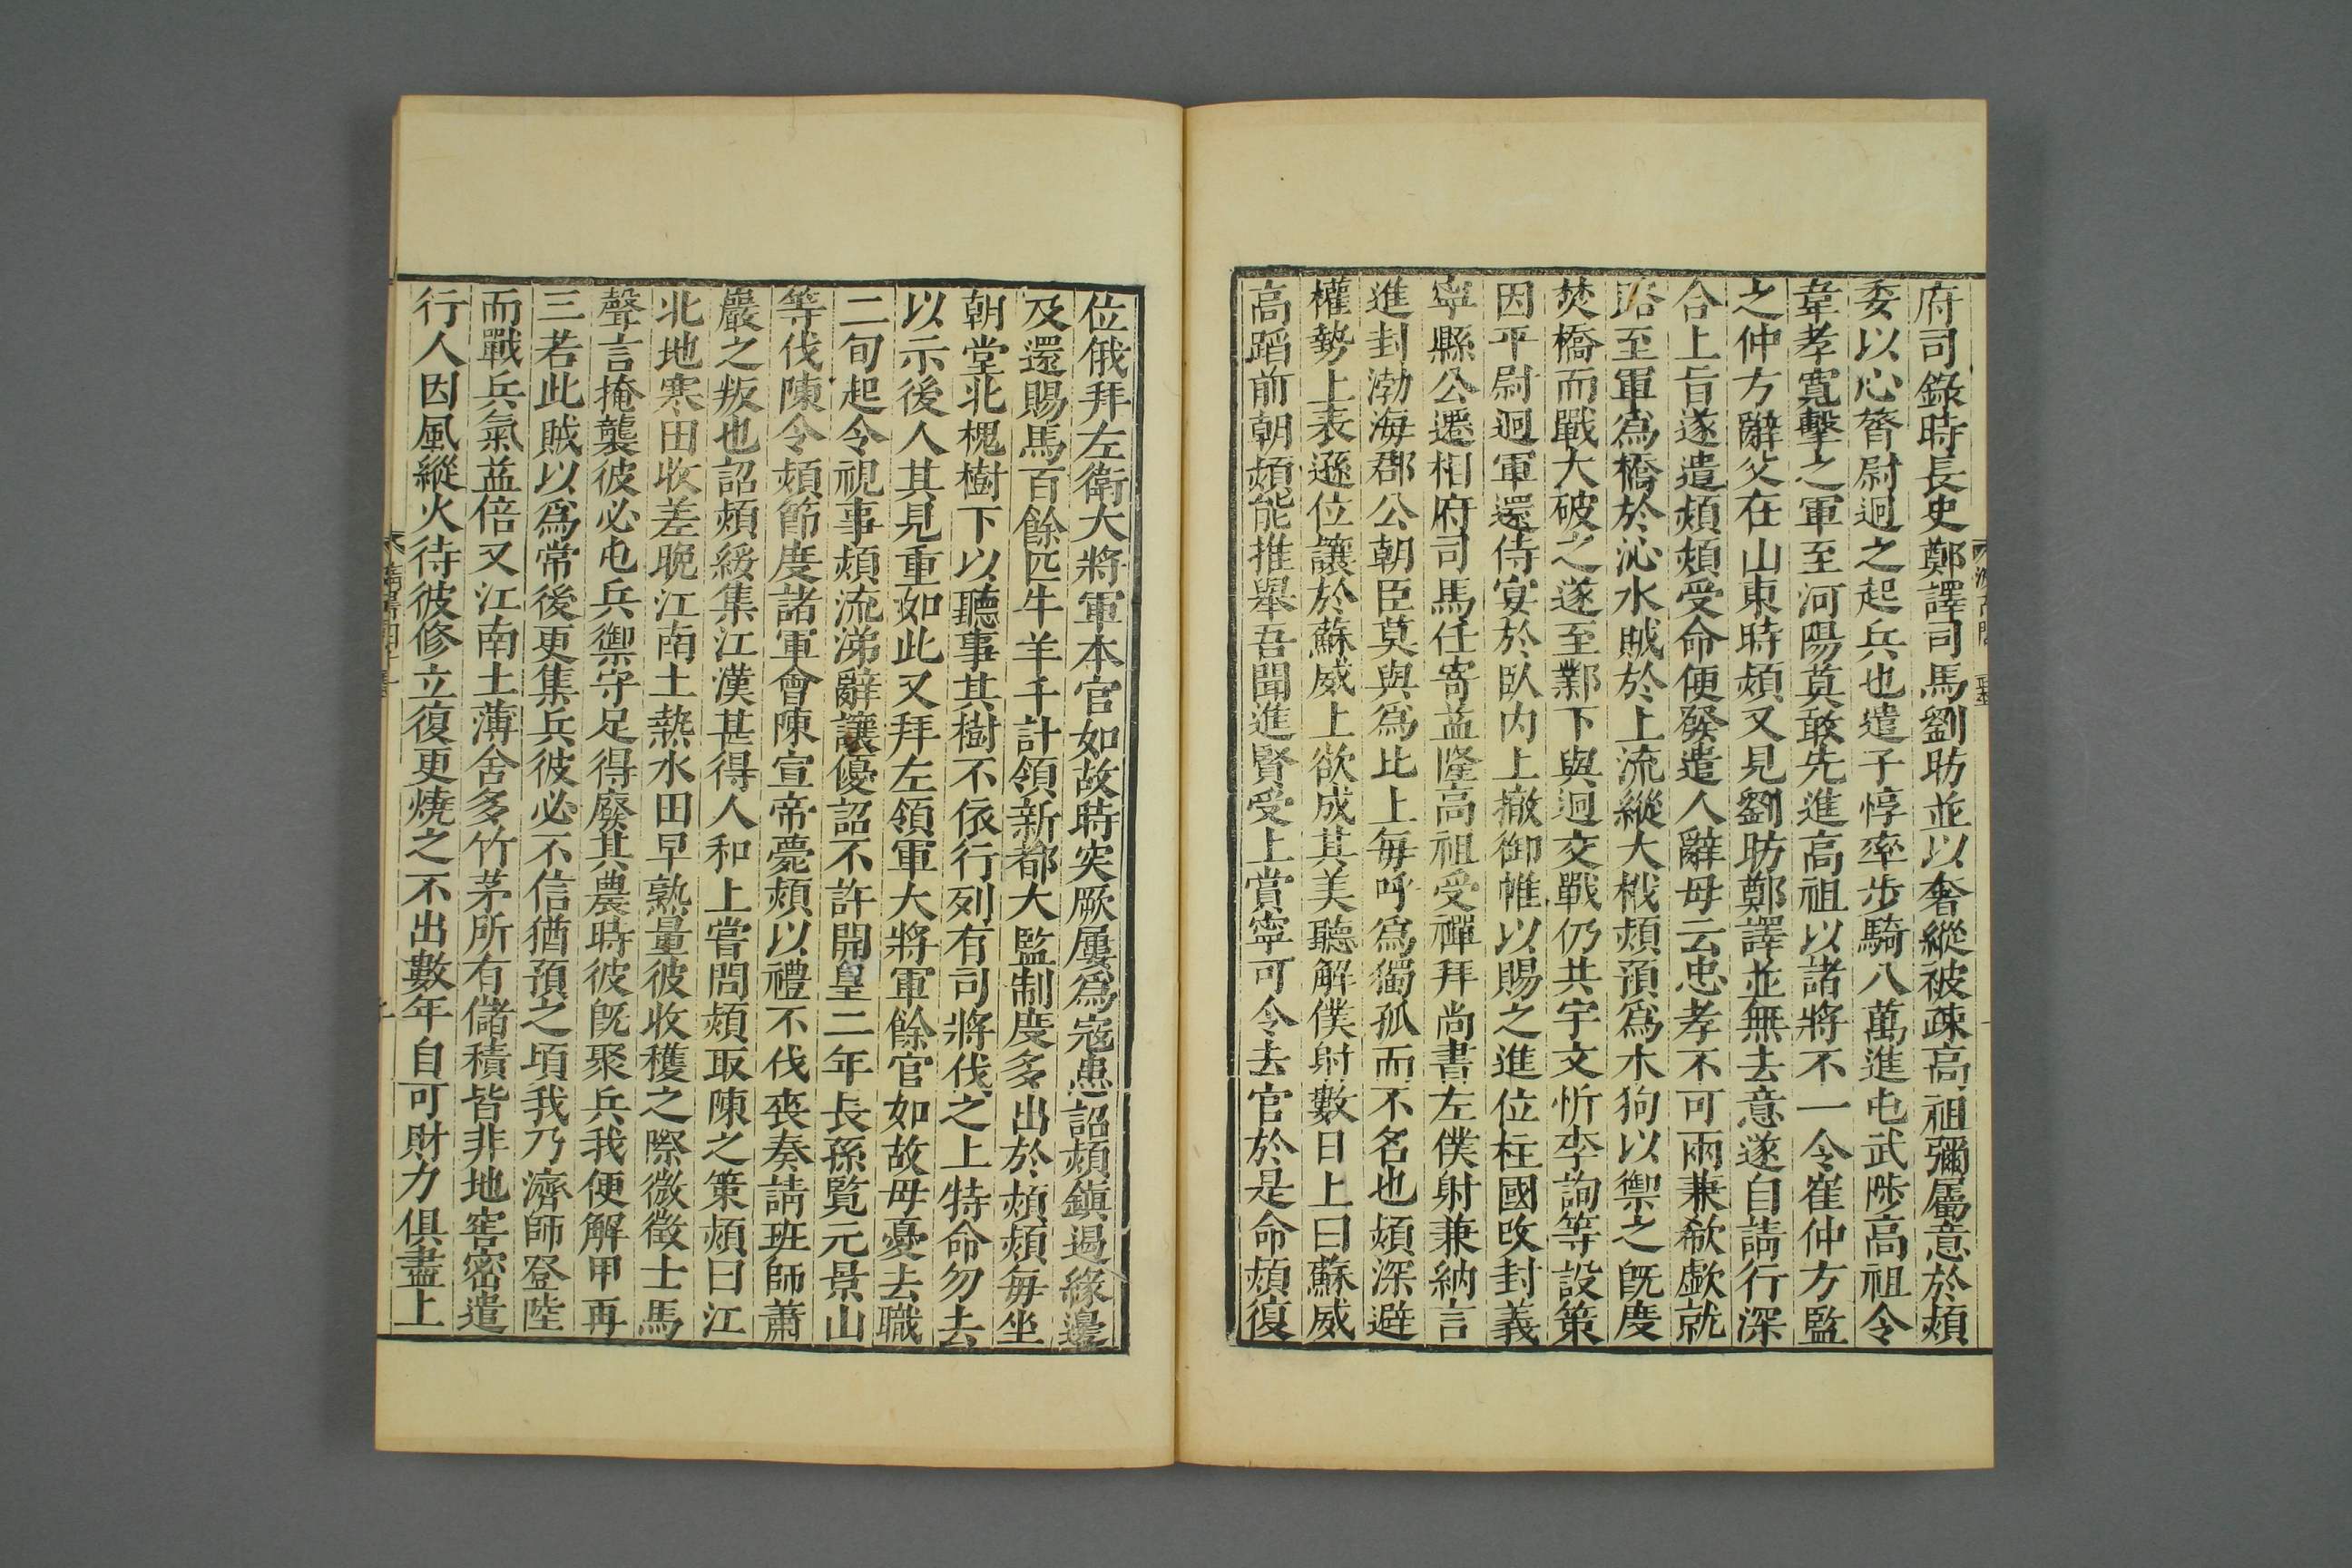 府司錄時長史鄭譯司馬劉昉並以奢縱被疎高祖彌屬意於熲
委以心膂尉迥之起兵也遣子惇率步騎八萬進屯武陟高祖令
韋孝寬擊之軍至河陽莫敢先進高祖以諸將不一令崔仲方監
之仲方辭父在山東時熲又見劉昉鄭譯並無去意遂自請行深
合上旨遂遣熲熲受命便發遣人辭母云忠孝不可兩兼歔欷就
路至軍爲橋於沁水賊於上流縱大栰熲預爲木狗以禦之旣度
焚橋而戰大破之遂至鄴下與迥交戰仍共宇文忻李詢等設策
因平尉迥軍還侍宴於臥内上撤御帷以賜之進位柱國改封義
寧縣公遷相府司馬任寄益隆高祖受禪拜尚書左僕射兼納言
進封渤海郡公朝臣莫與爲比上每呼爲獨孤而不名也熲深避
權勢上表遜位讓於蘇威上欲成其美聽解僕射數日上曰蘇威
高蹈前朝熲能推舉吾聞進賢受上賞寧可令去官於是命熲復
位俄拜左衛大將軍本官如故時突厥屢爲寇患詔熲鎭遏緣邊
及還賜馬百餘匹牛羊千計領新都大監制度多出於熲熲每坐
朝堂北槐樹下以聽事其樹不依行列有司將伐之上特命勿去
以示後人其見重如此又拜左領軍大將軍餘官如故母憂去職
二旬起令視事熲流涕辭讓優詔不許開皇二年長孫覽元景山
等伐陳令熲節度諸軍會陳宣帝薨熲以禮不伐喪奏請班師蕭
巖之叛也詔熲綏集江漢甚得人和上嘗問熲取陳之策熲曰江
北地寒田收差晚江南土熱水田早熟量彼收穫之際微徵士馬
聲言掩襲彼必屯兵禦守足得廢其農時彼旣聚兵我便解甲再
三若此賊以爲常後更集兵彼必不信猶預之頃我乃濟師登陸
而戰兵氣益倍又江南土薄舍多竹茅所有儲積皆非地窖密遣
行人因風縱火待彼修立復更燒之不出數年自可財力俱盡上